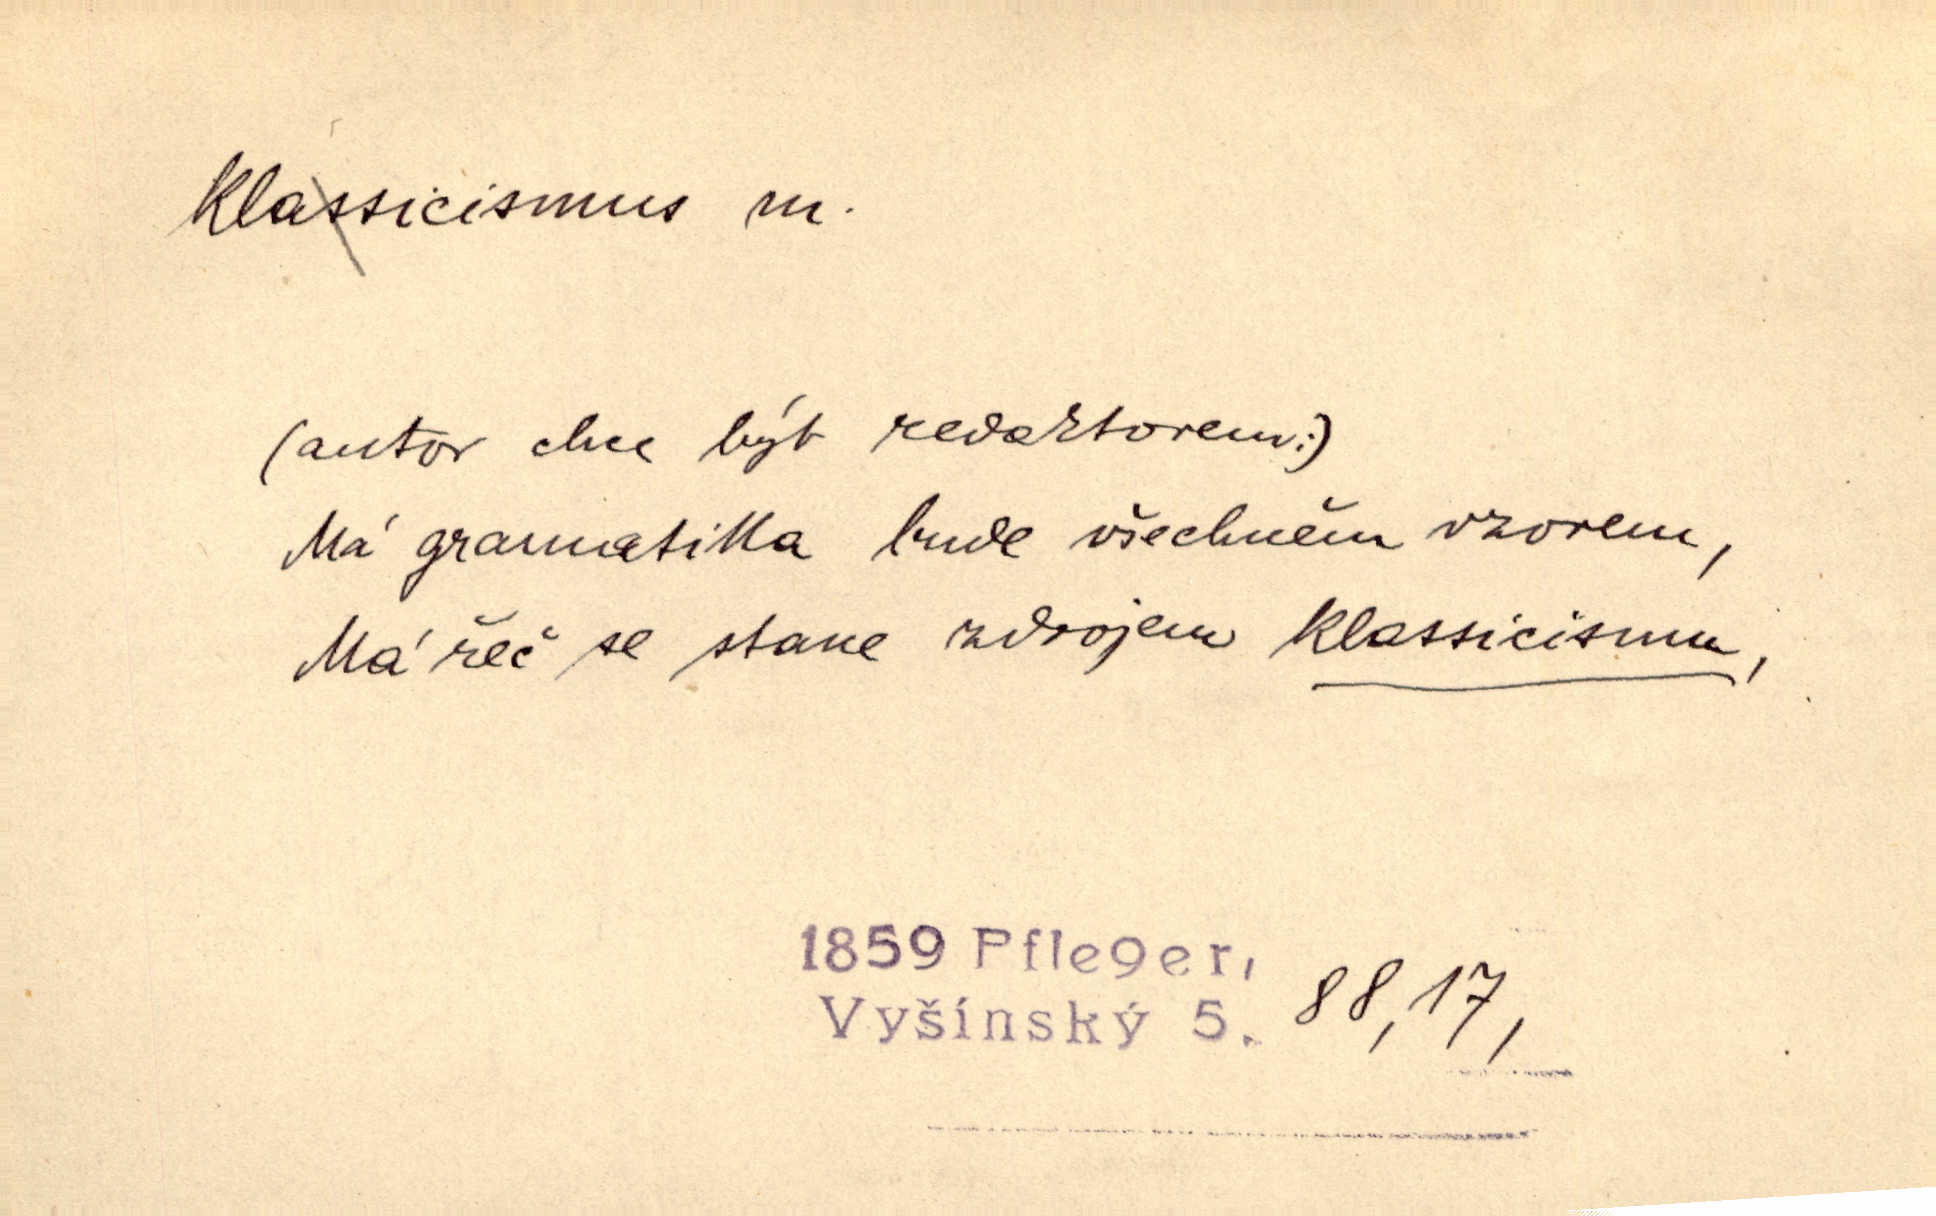 klassicismus m.
(autor chce být redaktorem:)
Má gramatika bude všechněm vzorem,
Má řeč se stane zdrojem klassicismu,
1859 Pfleger,
Vyšínský 5. 88,17,